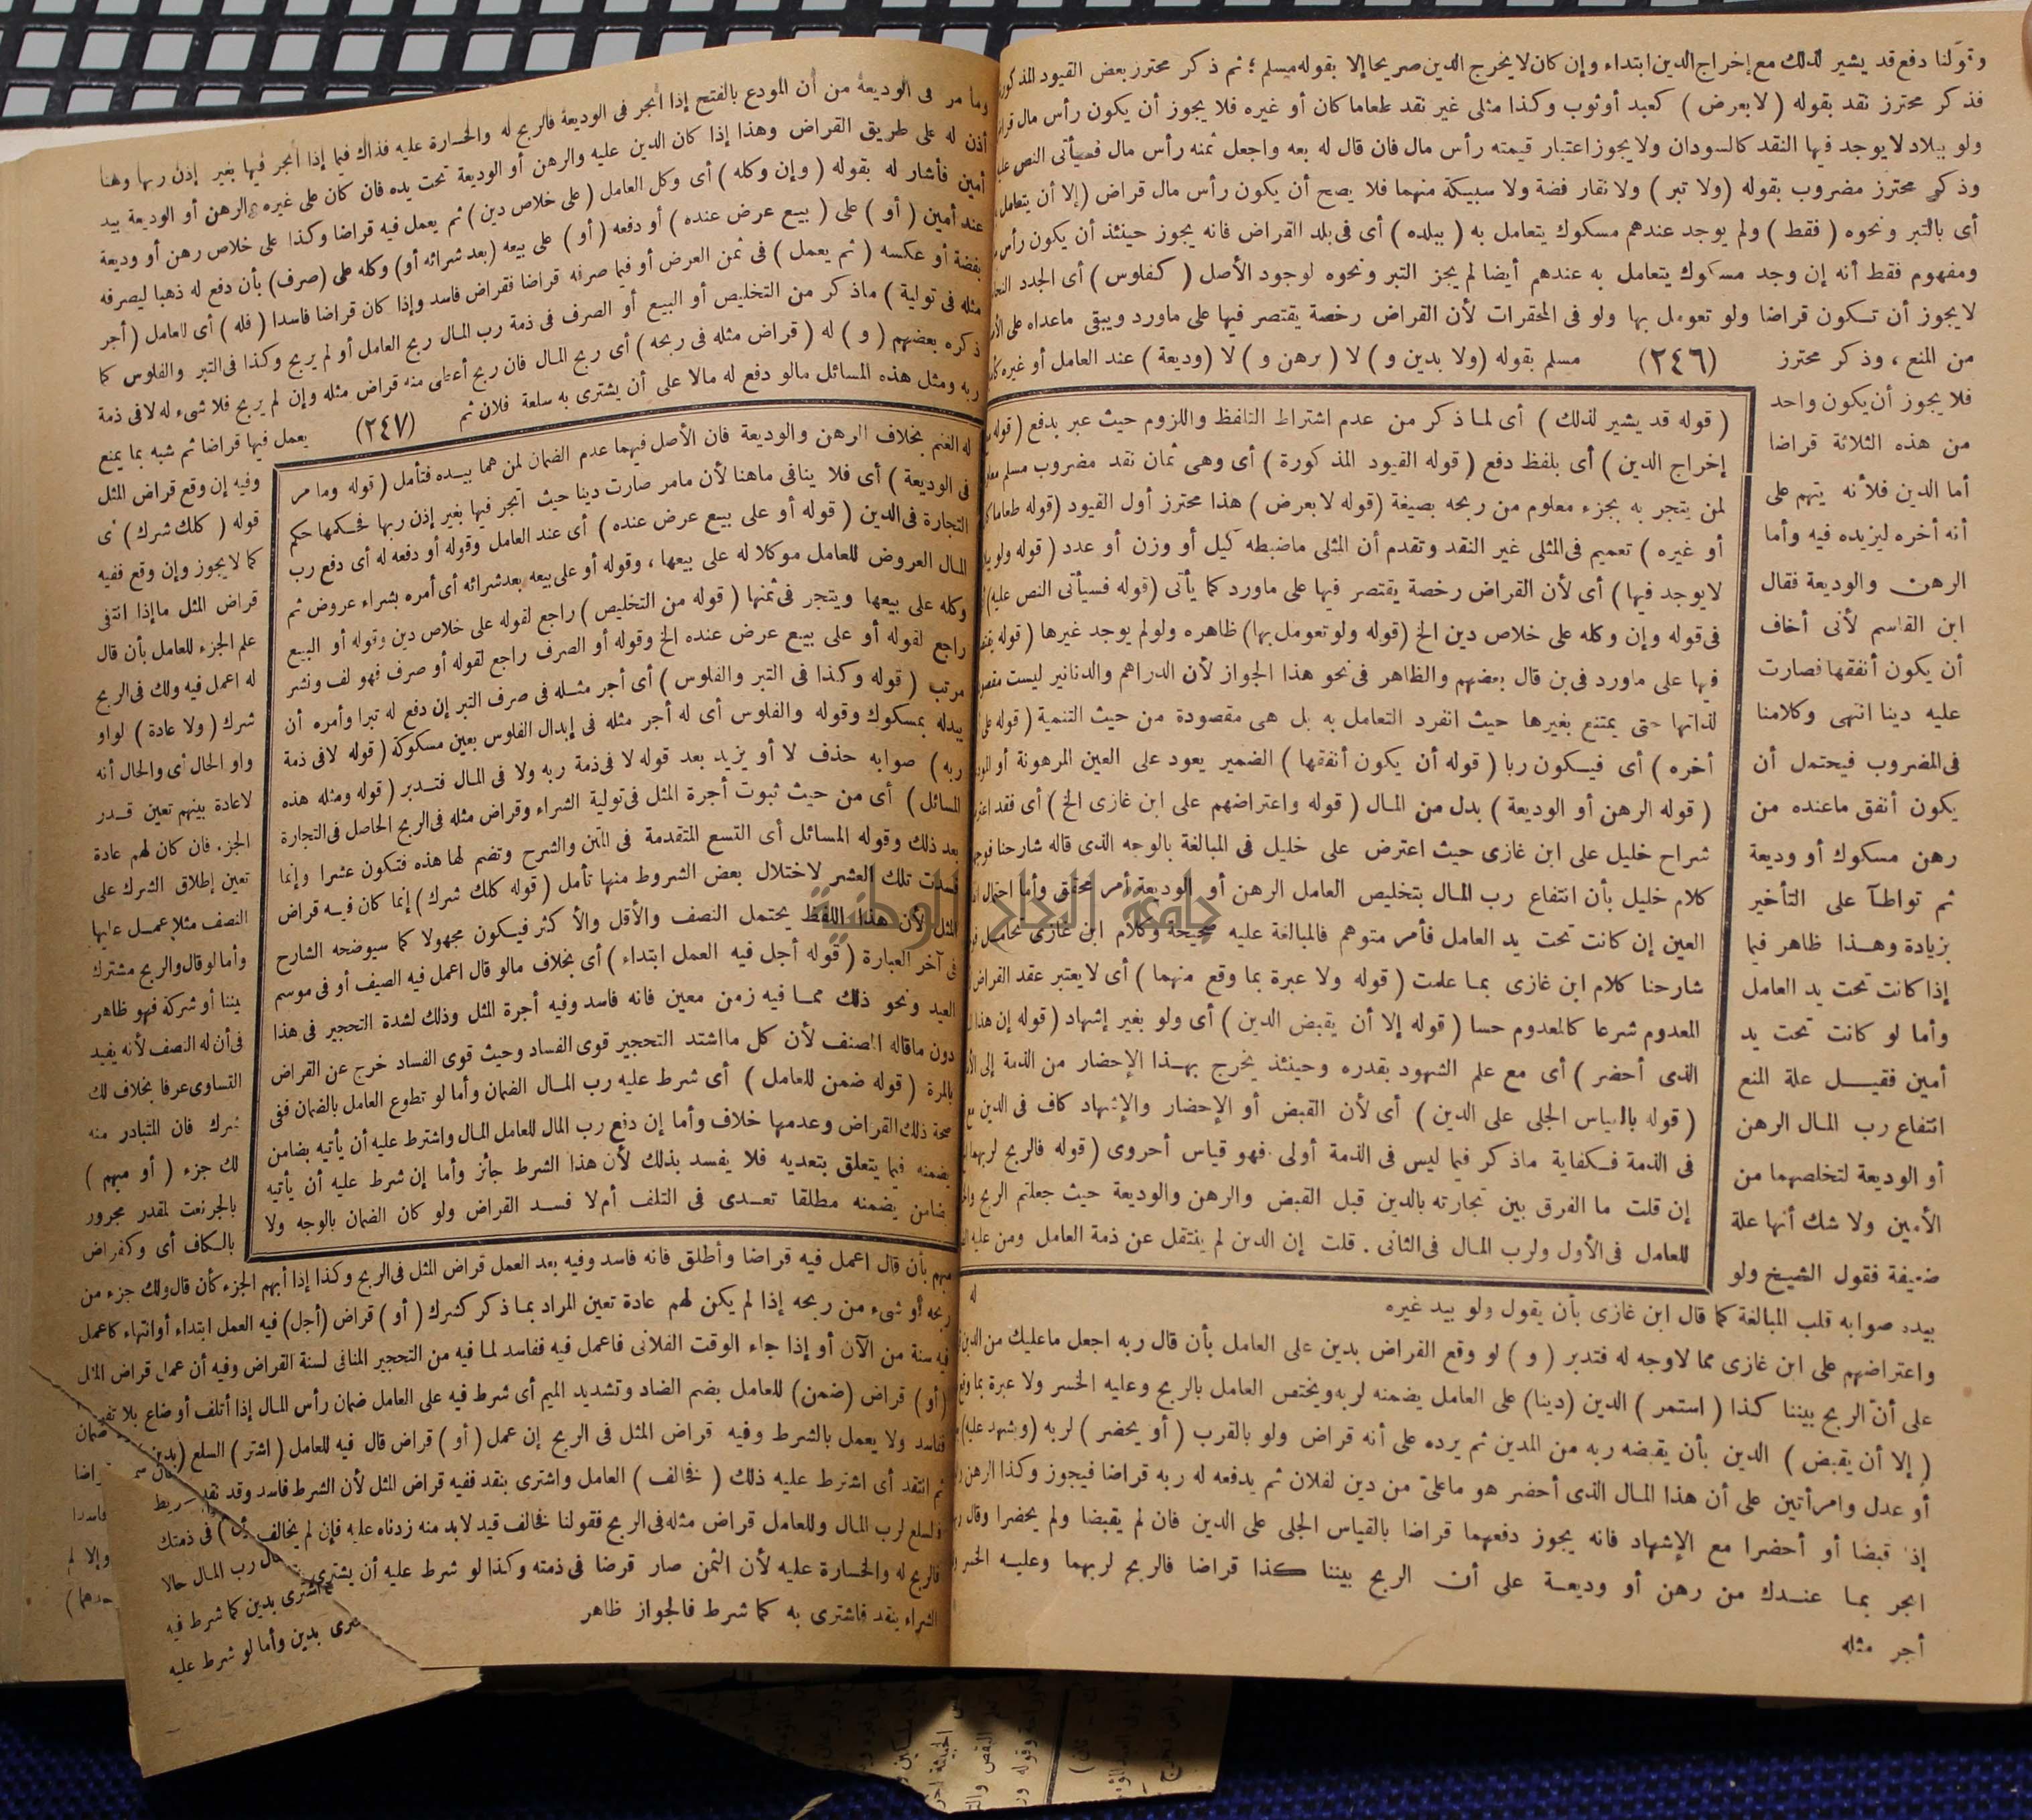 وقولنا دفع قد يشير لذلك مع إخراج الدين ابتداء وإن كان لا يخرج الدين صريحا إلا بقوله مسلم ؛ ثم ذكر محترز بعض القيود المذكورة
فذكر محترز نقد بقوله ( لا بعرض ) كعبد أو ثوب وكذا مثلى غير نقد طعاما كان أو غيره فلا يجوز أن يكون رأس مال
ولو ببلاد لا يوجد فيها النقد كالسودان ولا يجوز اعتبار قيمته رأس مال فان قال له بعه واجعل ثمنه رأس مال فسيأتى النص
وذكر محترز مضروب بقوله ( ولا تبر ) ولا نقار فضة ولا سبيكة منهما فلا يصح أن يكون رأس مال قراض ( إلا أن يتعامل
أى بالتبر ونحوه ( فقط ) ولم يوجد عندهم مسكوك يتعامل به ( ببلده ) أى فى بلد القراض فانه يجوز حينئذ أن يكون رأس
ومفهوم فقط أنه إن وجد مسكوك يتعامل به عندهم أيضا لم يجز التبر ونحوه لوجود الأصل ( كفلوس ) أى الجدد
لا يجوز أن تكون قراضا ولو تعومل بها ولو فى المحقرات لأن القراض رخصة يقتصر فيها على ماورد ويبقى ماعداه على
من المنع ، وذكر محترز (٢٤٦) مسلم بقوله ( ولا بدين و ) لا ( برهن و ) لا ( وديعة ) عند العامل أو غيره
فلا يجوز أن يكون واحد
من هذه الثلاثة قراضا
أما الدين فلأنه يتهم على
أنه أخره ليزيده فيه وأما
الرهن والوديعة فقال
ابن القاسم لأنى أخاف
أن يكون أنفقها فصارت
عليه دينا انتهى وكلامنا
فى المضروب فيحتمل أن
يكون أنفق ماعنده من
رهن مسكوك أو وديعة
ثم تواطآ على التأخير
بزيادة وهذا ظاهر فيما
إذا كانت تحت يد العامل
وأما لو كانت تحت يد
أمين فقيل علة المنع
انتفاع رب المال الرهن
أو الوديعة لتخلصهما من
الأمين ولا شك أنها علة
ضعيفة فقول الشيخ ولو
بيده صوابه قلب المبالغة كما قال ابن غازى بأن يقول ولو بيد غيره
واعتراضهم على ابن غازى مما لاوجه له فتدبر ( و ) لو وقع القراض بدين على العامل بأن قال ربه اجعل ماعليك من الدين
على أن الربح بيننا كذا ( استمر ) الدين ( دينا ) على العامل يضمنه لربه ويختص العامل بالربح وعليه الخسر ولا عبرة بما وقع
( إلا أن يقبض ) الدين بأن يقبضه ربه من المدين ثم يرده على أنه قراض ولو بالقرب ( أو يحضر ) لربه ( ويشهد عليه )
أو عدل وامرأتين على أن هذا المال الذى أحضر هو ماعلىّ من دين لفلان ثم يدفعه له ربه قراضا فيجوز وكذا الرهن
إذا قبضا أو أحضرا مع الإشهاد فانه يجوز دفعهما قراضا بالقياس الجلى على الدين فان لم يقبضا ولم يحضرا وقال
اتجر بما عندك من رهن أو وديعة على أن الربح بيننا كذا قراضا فالربح لربهما وعليه الخسر
أجر مثله
( قوله قد يشير لذلك ) أى لما ذكر من عدم اشتراط التلفظ واللزوم حيث عبر بدفع ( قوله
إخراج الدين ) أى بلفظ دفع ( قوله القيود المذكورة ) أى وهى ثمان نقد مضروب مسلم
لمن يتجر به بجزء معلوم من ربحه بصيغة ( قوله لا بعرض ) هذا محترز أول القيود ( قوله طعاما
أو غيره ) تعميم فى المثلى غير النقد وتقدم أن المثلى ماضبطه كيل أو وزن أو عدد ( قوله ولو
لا يوجد فيها ) أى لأن القراض رخصة يقتصر فيها على ماورد كما يأتى ( قوله فسيأتى النص عليه )
فى قوله وإن وكله على خلاص دين الخ ( قوله ولو تعومل بها ) ظاهره ولو لم يوجد غيرها ( قوله
فيها على ماورد فى بن قال بعضهم والظاهر فى نحو هذا الجواز لأن الدراهم والدنانير ليست
لذاتها حتى يمتنع بغيرها حيث انفرد التعامل به بل هى مقصودة من حيث التنمية ( قوله
أخره ) أى فيكون ربا ( قوله أن يكون أنفقها ) الضمير يعود على العين المرهونة أو
( قوله الرهن أو الوديعة ) بدل من المال ( قوله واعتراضهم على ابن غازى الخ ) أى فقد
شراح خليل على ابن غازى حيث اعترض على خليل فى المبالغة بالوجه الذى قاله شارحنا
كلام خليل بأن انتفاع رب المال بتخليص العامل الرهن أو الوديعة أمر محقق وأما
العين إن كانت تحت يد العامل فأمر متوهم فالمبالغة عليه صحيحة وكلام ابن غازى
شارحنا كلام ابن غازى بما علمت ( قوله ولا عبرة بما وقع منهما ) أى لا يعتبر عقد القراض
المعدوم شرعا كالمعدوم حسا ( قوله إلا أن يقبض الدين ) أى ولو بغير إشهاد ( قوله إن هذا
الذى أحضر ) أى مع علم الشهود بقدره وحينئذ يخرج بهذا الإحضار من الذمة إلى
( قوله بالقياس الجلى على الدين ) أى لأن القبض أو الإحضار والإشهاد كاف فى الدين
فى الذمة فكفاية ماذكر فيما ليس فى الذمة أولى فهو قياس أحروى ( قوله فالربح لربهما
إن قلت ما الفرق بين تجارته بالدين قبل القبض والرهن والوديعة حيث جعلتم الربح
للعامل فى الأول ولرب المال فى الثانى . قلت إن الدين لم ينتقل عن ذمة العامل ومن عليه
له
وما مر فى الوديعة من أن المودع بالفتح إذا اتجر فى الوديعة فالربح له والخسارة عليه فذاك فيما إذا اتجر فيها بغير إذن ربها وهنا
أذن له على طريق القراض وهذا إذا كان الدين عليه والرهن أو الوديعة تحت يده فان كان على غيره والرهن أو الوديعة بيد
أمين فأشار له بقوله ( وإن وكله ) أى وكل العامل ( على خلاص دين ) ثم يعمل فيه قراضا وكذا على خلاص رهن أو وديعة
عند أمين ( أو ) على ( بيع عرض عنده ) أو دفعه ( أو ) على بيعه ( بعد شرائه أو ) وكله على ( صرف ) بأن دفع له ذهبا ليصرفه
بفضة أو عكسه ( ثم يعمل ) فى ثمن العرض أو فيما صرفه قراضا فقراض فاسد وإذا كان قراضا فاسدا ( فله ) أى للعامل ( أجر
مثله فى تولية ) ماذكر من التخليص أو البيع أو الصرف فى ذمة رب المال ربح العامل أو لم يربح وكذا فى التبر والفلوس كما
ذكره بعضهم ( و ) له ( قراض مثله فى ربحه ) أى ربح المال فان ربح أعطى منه قراض مثله وإن لم يربح فلا شىء له لا فى ذمة
ربه ومثل هذه المسائل مالو دفع له مالا على أن يشترى به سلعة فلان ثم (٢٤٧) يعمل فيها قراضا ثم شبه بما يمنع
وفيه إن وقع قراض المثل
قوله ( كلك شرك ) أى
كما لا يجوز وإن وقع ففيه
قراض المثل ماإذا انتفى
علم الجزء للعامل بأن قال
له اعمل فيه ولك فى الربح
شرك ( ولا عادة ) الواو
واو الحال أى والحال أنه
لاعادة بينهم تعين قدر
الجزء فان كان لهم عادة
تعين إطلاق الشرك على
النصف مثلا عمل عليها
وأما لو قال والربح مشترك
بيننا أو شركة فهو ظاهر
فى أن له النصف لأنه يفيد
التساوى عرفا بخلاف لك
شرك فان المتبادر منه
لك جزء ( أو مبهم )
بالجر نعت لمقدر مجرور
بالكاف أى وكقراض
له الغنم بخلاف الرهن والوديعة فان الأصل فيهما عدم الضمان لمن هما بيده فتأمل ( قوله وما مر
فى الوديعة ) أى فلا ينافى ماهنا لأن مامر صارت دينا حيث اتجر فيها بغير إذن ربها فحكمها حكم
التجارة فى الدين ( قوله أو على بيع عرض عنده ) أى عند العامل وقوله أو دفعه له أى دفع رب
المال العروض للعامل موكلا له على بيعها ، وقوله أو على بيعه بعد شرائه أى أمره بشراء عروض ثم
وكله على بيعها ويتجر فى ثمنها ( قوله من التخليص ) راجع لقوله على خلاص دين وقوله أو البيع
راجع لقوله أو على بيع عرض عنده الخ وقوله أو الصرف راجع لقوله أو صرف فهو لف ونشر
مرتب ( قوله وكذا فى التبر والفلوس ) أى أجر مثله فى صرف التبر إن دفع له تبرا وأمره أن
يبدله بمسكوك وقوله والفلوس أى له أجر مثله فى إبدال الفلوس بعين مسكوكة ( قوله لا فى ذمة
ربه ) صوابه حذف لا أو يزيد بعد قوله لا فى ذمة ربه ولا فى المال فتدبر ( قوله ومثله هذه
المسائل ) أى من حيث ثبوت أجرة المثل فى تولية الشراء وقراض مثله فى الربح الحاصل فى التجارة
بعد ذلك وقوله المسائل أى التسع المتقدمة فى المتن والشرح وتضم لها هذه فتكون عشرا وإنما
فسدت تلك العشر لاختلال بعض الشروط منها تأمل ( قوله كلك شرك ) إنما كان فيه قراض
المثل لأن هذا اللفظ يحتمل النصف والأقل والأكثر فيكون مجهولا كما سيوضحه الشارح
فى آخر العبارة ( قوله أجل فيه العمل ابتداء ) أى بخلاف مالو قال اعمل فيه الصيف أو فى موسم
العيد ونحو ذلك مما فيه زمن معين فانه فاسد وفيه أجرة المثل وذلك لشدة التحجير فى هذا
دون ماقاله المصنف لأن كل مااشتد التحجير قوى الفساد وحيث قوى الفساد خرج عن القراض
بالمرة ( قوله ضمن للعامل ) أى شرط عليه رب المال الضمان وأما لو تطوع العامل بالضمان ففى
صحة ذلك القراض وعدمها خلاف وأما إن دفع رب المال للعامل المال واشترط عليه أن يأتيه بضامن
يضمنه فيما يتعلق بتعديه فلا يفسد بذلك لأن هذا الشرط جائز وأما إن شرط عليه أن يأتيه
بضامن يضمنه مطلقا تعدى فى التلف أم لا فسد القراض ولو كان الضمان بالوجه ولا
مبهم بأن قال اعمل فيه قراضا وأطلق فانه فاسد وفيه بعد العمل قراض المثل فى الربح وكذا إذا أبهم الجزء كأن قال ولك جزء من
ربحه أو شىء من ربحه إذا لم يكن لهم عادة تعين المراد بما ذكر كشرك ( أو ) قراض ( أجل ) فيه العمل ابتداء أو انتهاء كاعمل
فيه سنة من الآن أو إذا جاء الوقت الفلانى فاعمل فيه ففاسد لما فيه من التحجير المنافى لسنة القراض وفيه أن عمل قراض المثل
( أو ) قراض ( ضمن ) للعامل بضم الضاد وتشديد الميم أى شرط فيه على العامل ضمان رأس المال إذا أتلف أو ضاع بلا
ففاسد ولا يعمل بالشرط وفيه قراض المثل فى الربح إن عمل ( أو ) قراض قال فيه للعامل ( اشتر ) السلع ( بدين
ثم انتقد أى اشترط عليه ذلك ( فخالف ) العامل واشترى بنقد ففيه قراض المثل لأن الشرط فاسد وقد نقد
فالسلع لرب المال وللعامل قراض مثله فى الربح فقولنا فخالف قيد لابد منه زدناه عليه فإن لم يخالف
فالربح له والخسارة عليه لأن الثمن صار قرضا فى ذمته وكذا لو شرط عليه أن يشترى
الشراء بنقد فاشترى به كما شرط فالجواز ظاهر
ضمان
فاسدا
وإلا لم
فى ذمتك
رب المال حالا
اشترى بدين كما شرط فيه
بدين وأما لو شرط عليه
جامعة النجاح الوطنية